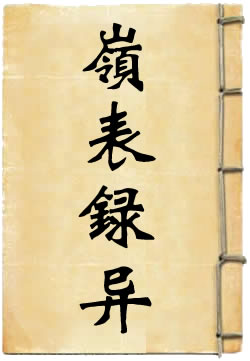 嶺表録异